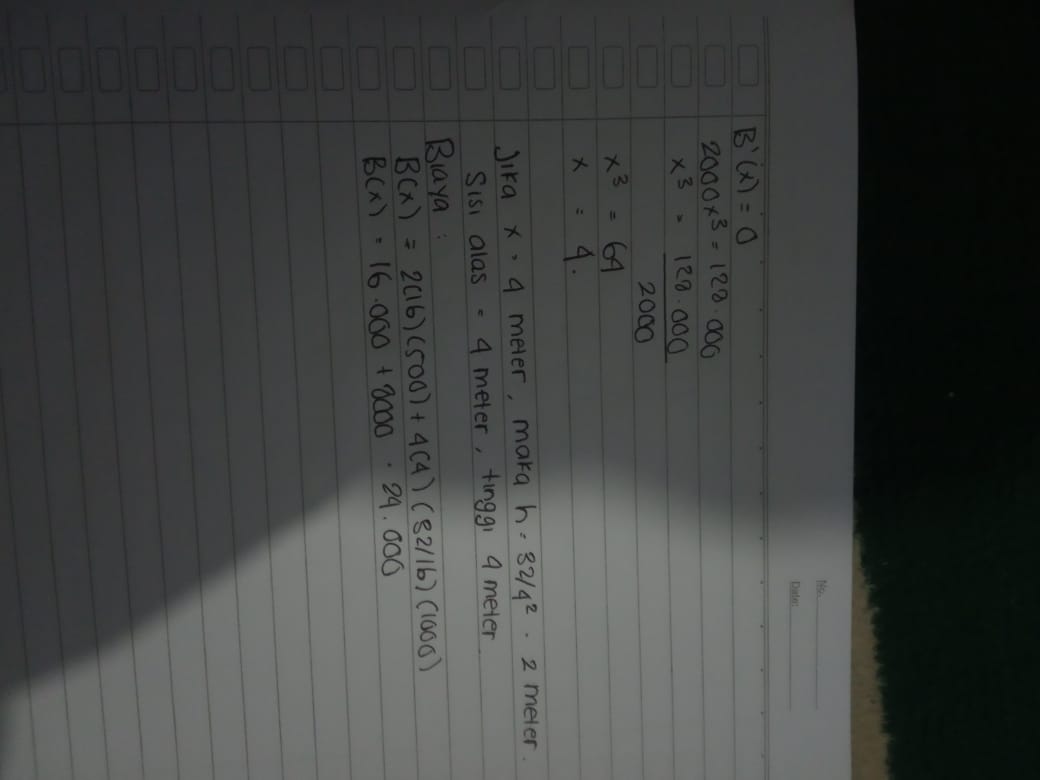 No.
Date:
B'(x) = 0
2000x³ = 128.000
x³ = 128.000
2000
x³ = 64
x = 4.
Jika x = 4 meter, maka h = 32/4² = 2 meter.
Sisi alas = 4 meter, tinggi 4 meter
Biaya :
B(x) = 2(16)(500) + 4(4)(32/16)(1000)
B(x) = 16.000 + 8000 = 24.000